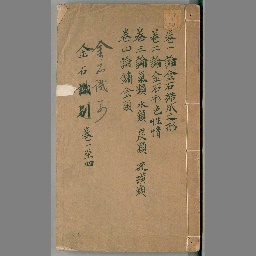 卷一論金石流水之形
卷二論金石形色性情
卷三論氣類 水類 炭類 硫璜類
卷四論鏽金類
金石識別
金石識別 卷一至四